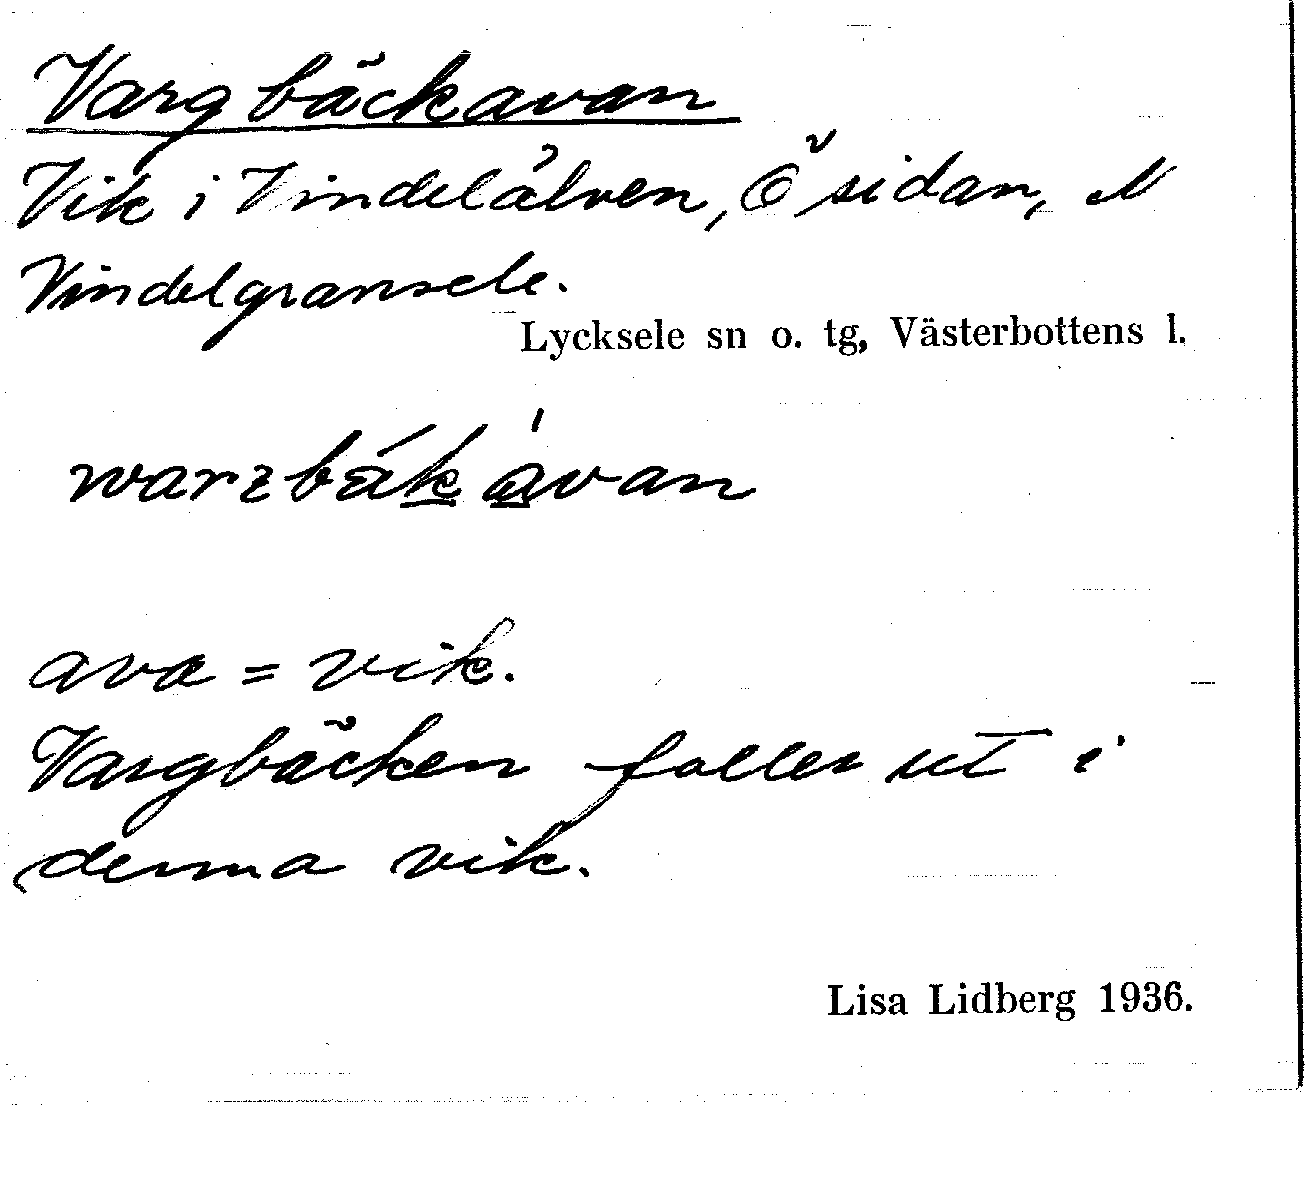 Vargbäckavan
Vik i Vindelälven, Ö sidan, N
Vindelgransele.
Lycksele sn o. tg, Västerbottens l.
ava = vik.
Vargbäcken faller ut i
denna vik.
Lisa Lidberg 1936.